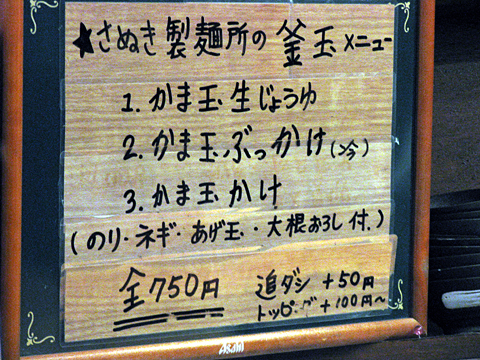 ★さぬき製麺所の釜玉メニュー
1. かま玉生じょうゆ
2. かま玉ぶっかけ(冷)
3. かま玉かけ
(のり・ネギ・あげ玉・大根おろし付.)
全750円
追ダシ +50円
トッピング +100円~
Asahi